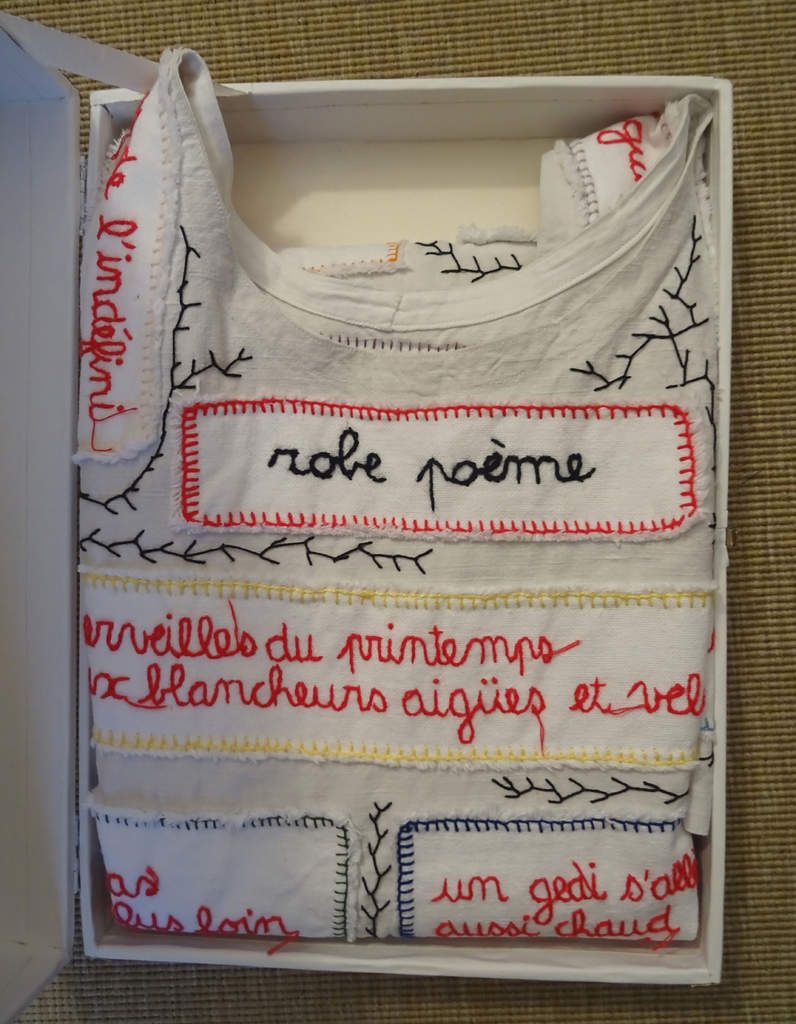 l'indéfini
robe poème
erveilles du printemps
ux blancheurs aigües et vel
as
lus loin
un gedi s'all
aussi chaud